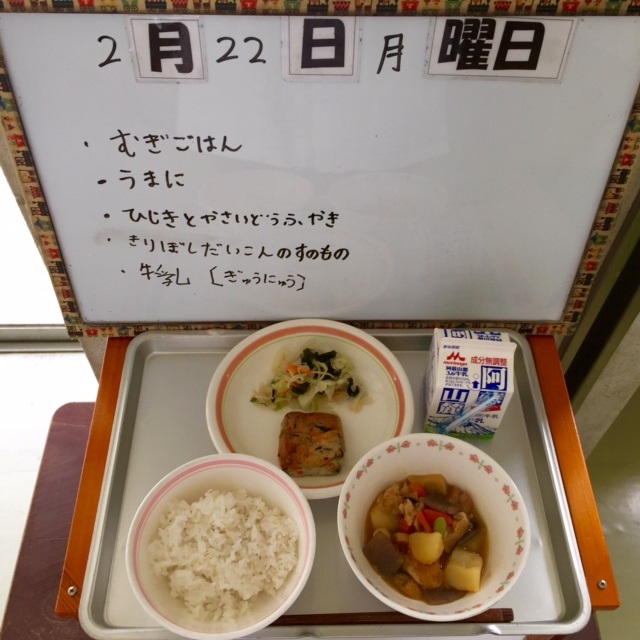 2月22日月曜日
・むぎごはん
・うまに
・ひじきとやさいどうふやき
・きりぼしだいこんのすのもの
・牛乳［ぎゅうにゅう］
成分無調整